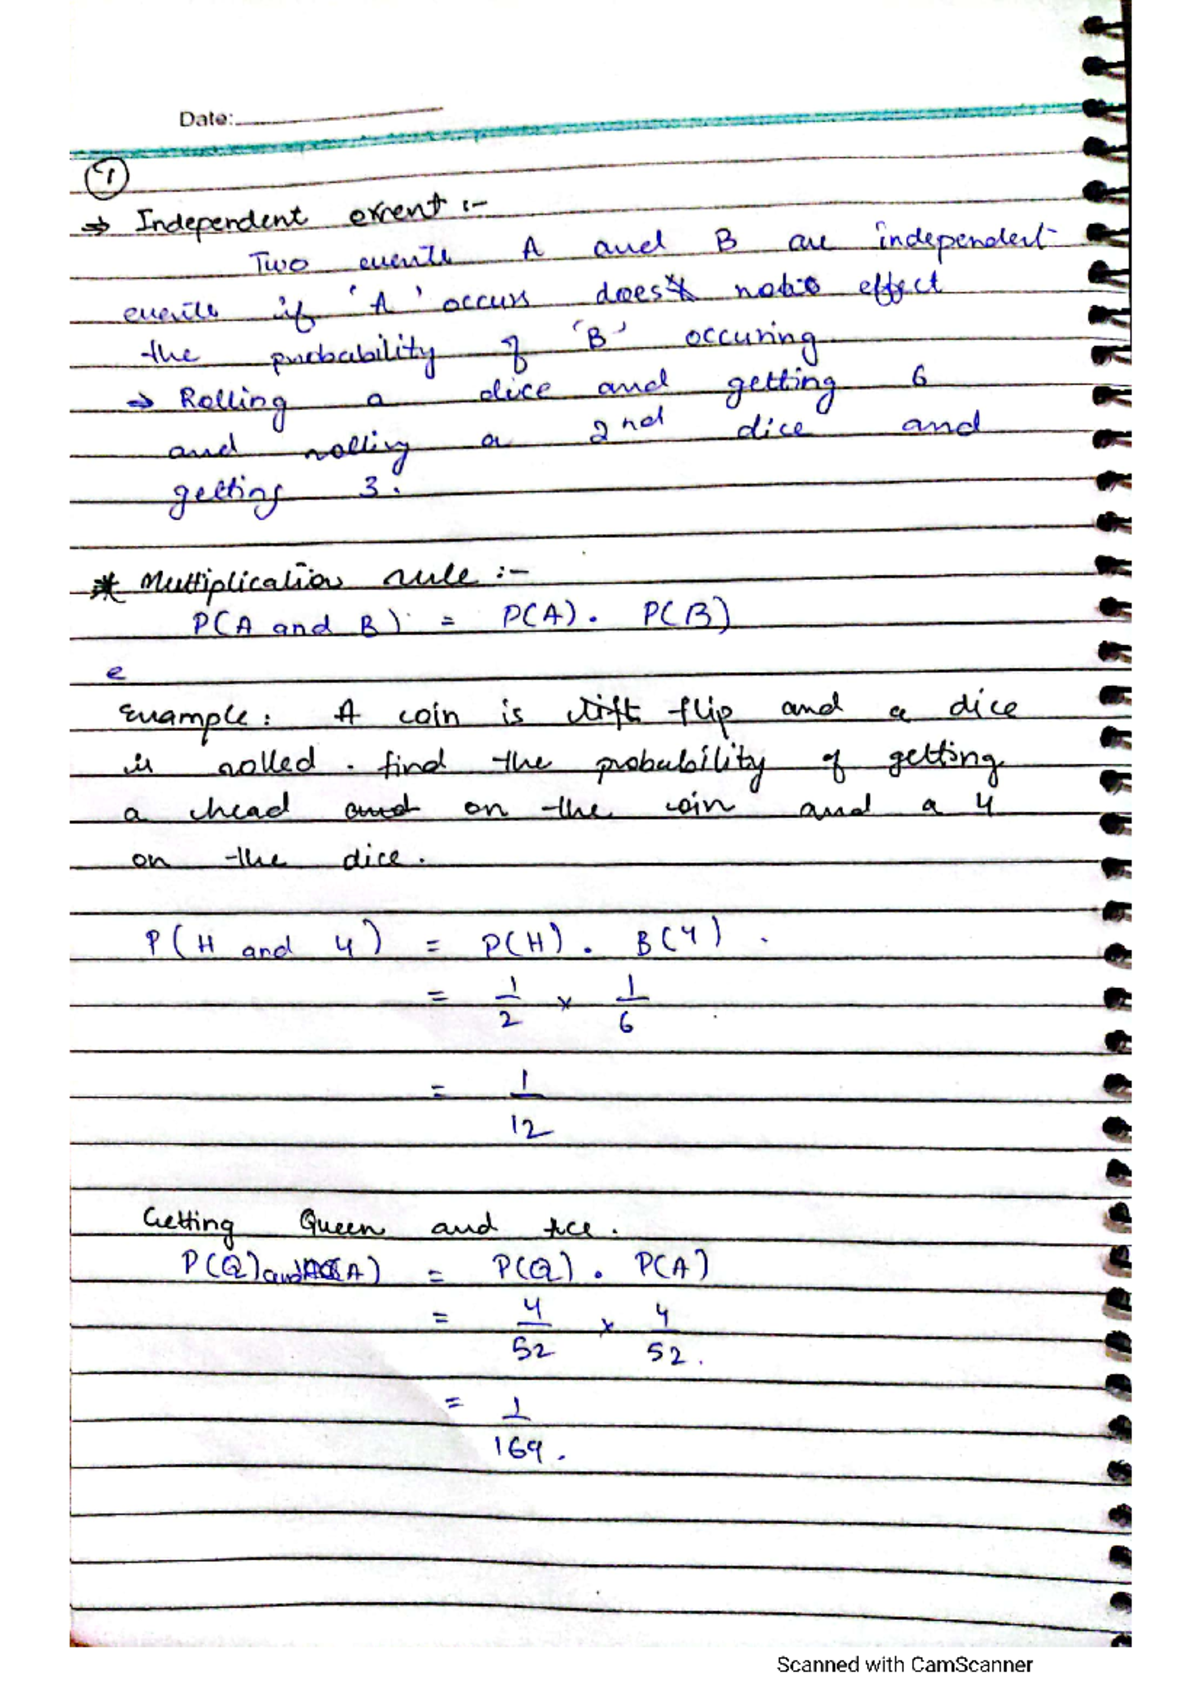 Date:
1
⇒ Independent event :-
Two events A and B are independent
events if 'A' occurs does not effect
the probability of 'B' occuring
→ Rolling a dice and getting 6
and rolling a 2nd dice and
getting 3.
* Multiplication rule :-
P(A and B) = P(A). P(B)
e
Example: A coin is flip and a dice
is rolled. find the probability of getting
a head and on the coin and a 4
on the dice.
P(H and 4) = P(H). B(4).
= 1/2 × 1/6
= 1/12
Getting Queen and Ace.
P(Q) and (A) = P(Q). P(A)
= 4/52 × 4/52.
= 1/169.
Scanned with CamScanner